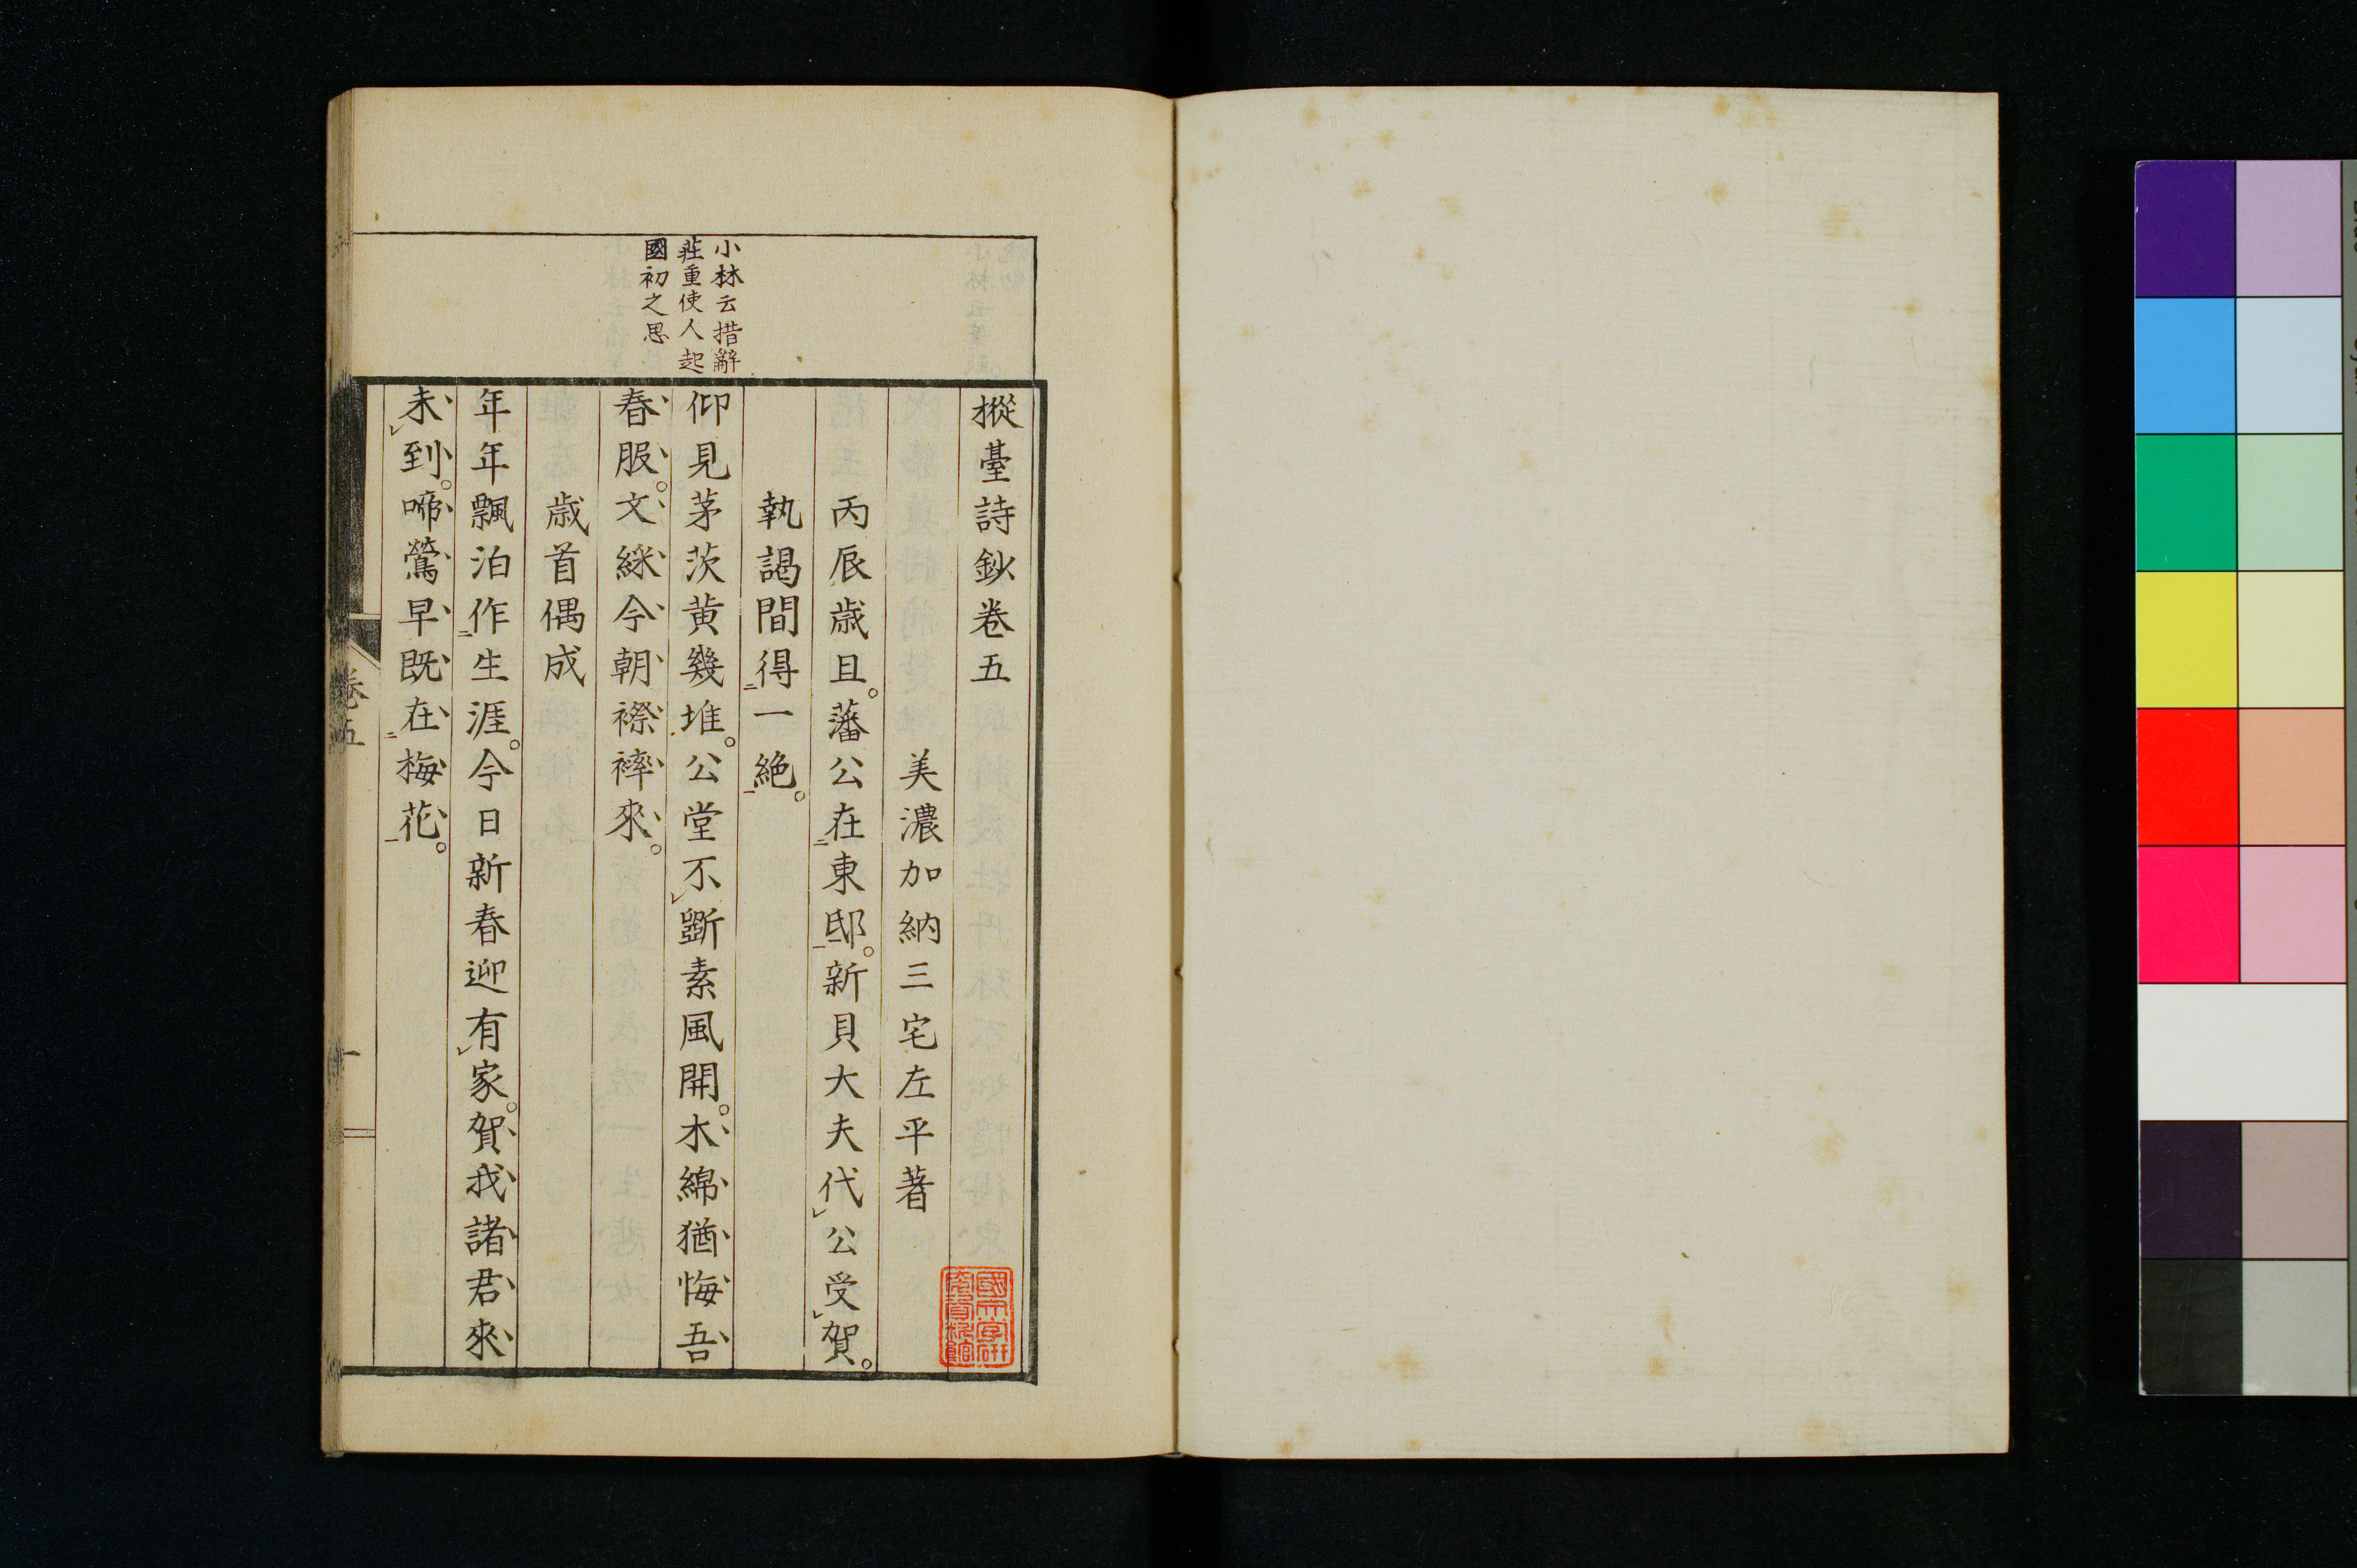 樅臺詩鈔卷五
美濃加納三宅左平著
丙辰歳旦。藩公在東邸。新貝大夫代公受賀。
執謁間得一絶。
小林云措辭
莊重使人起
國初之思
仰見茅茨黄幾堆。公堂不斲素風開。木綿猶悔吾
春服。文綵今朝襟裨來。
歳首偶成
年年飄泊作生涯。今日新春迎有家。賀我諸君來
未到。啼鶯早既在梅花。
卷五
一